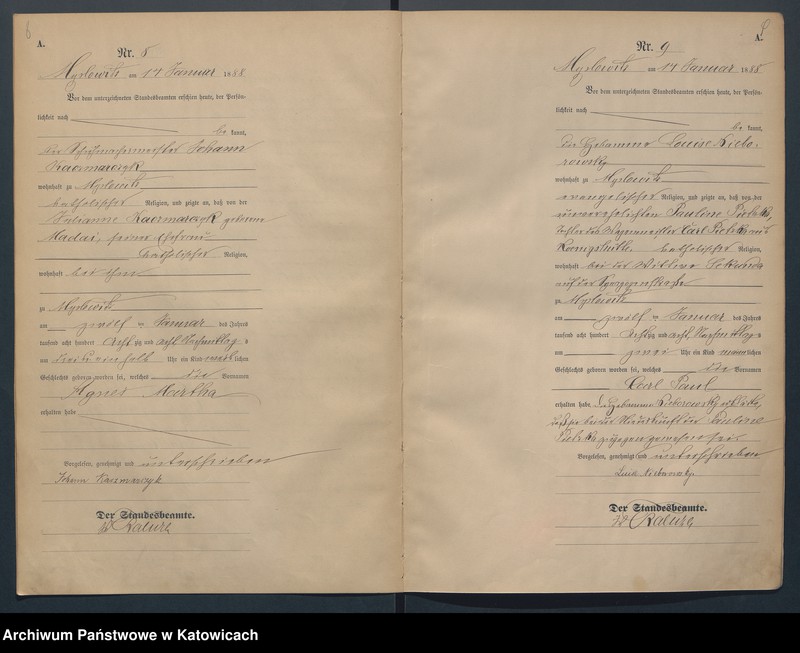 A.
Nr. 8
Myslowitz am 14 Januar 1888
Vor dem unterzeichneten Standesbeamten erschien heute, der Persön-
lichkeit nach
be kannt,
der Schuhmachermeister Johann
Kaczmarczyk
wohnhaft zu Myslowitz
katholischer Religion, und zeigte an, daß von der
Julianne Kaczmarczyk geborene
Madai, seiner Ehefrau
katholischer Religion,
wohnhaft bei ihm
zu Myslowitz
am zwölf ten Januar des Jahres
tausend acht hundert acht zig und acht Nachmittags
um Uhr ein Kind weib lichen
Geschlechts geboren worden sei, welches die Vornamen
Agnes Martha
erhalten habe
Vorgelesen, genehmigt und unterschrieben
Johann Kaczmarczyk
Der Standesbeamte.
A.
Nr. 9
Myslowitz am 14 Januar 1888
Vor dem unterzeichneten Standesbeamten erschien heute, der Persön-
lichkeit nach
be kannt,
die Hebamme Louise Niebo-
rowsky
wohnhaft zu Myslowitz
evangelischer Religion, und zeigte an, daß von der
unverehelichten Pauline
Tochter des Carl aus
Königshütte katholischer Religion,
wohnhaft bei der Wittwe
auf der
zu Myslowitz
am zwölf ten Januar des Jahres
tausend acht hundert achtzig und acht Nachmittags
um zwei Uhr ein Kind männlichen
Geschlechts geboren worden sei, welches die Vornamen
Carl Paul
erhalten habe. Die Hebamme Nieborowsky erklärte,
daß sie bei der Niederkunft der Pauline
zugegen gewesen sei
Vorgelesen, genehmigt und unterschrieben
Nieborowsky
Der Standesbeamte.
Archiwum Państwowe w Katowicach